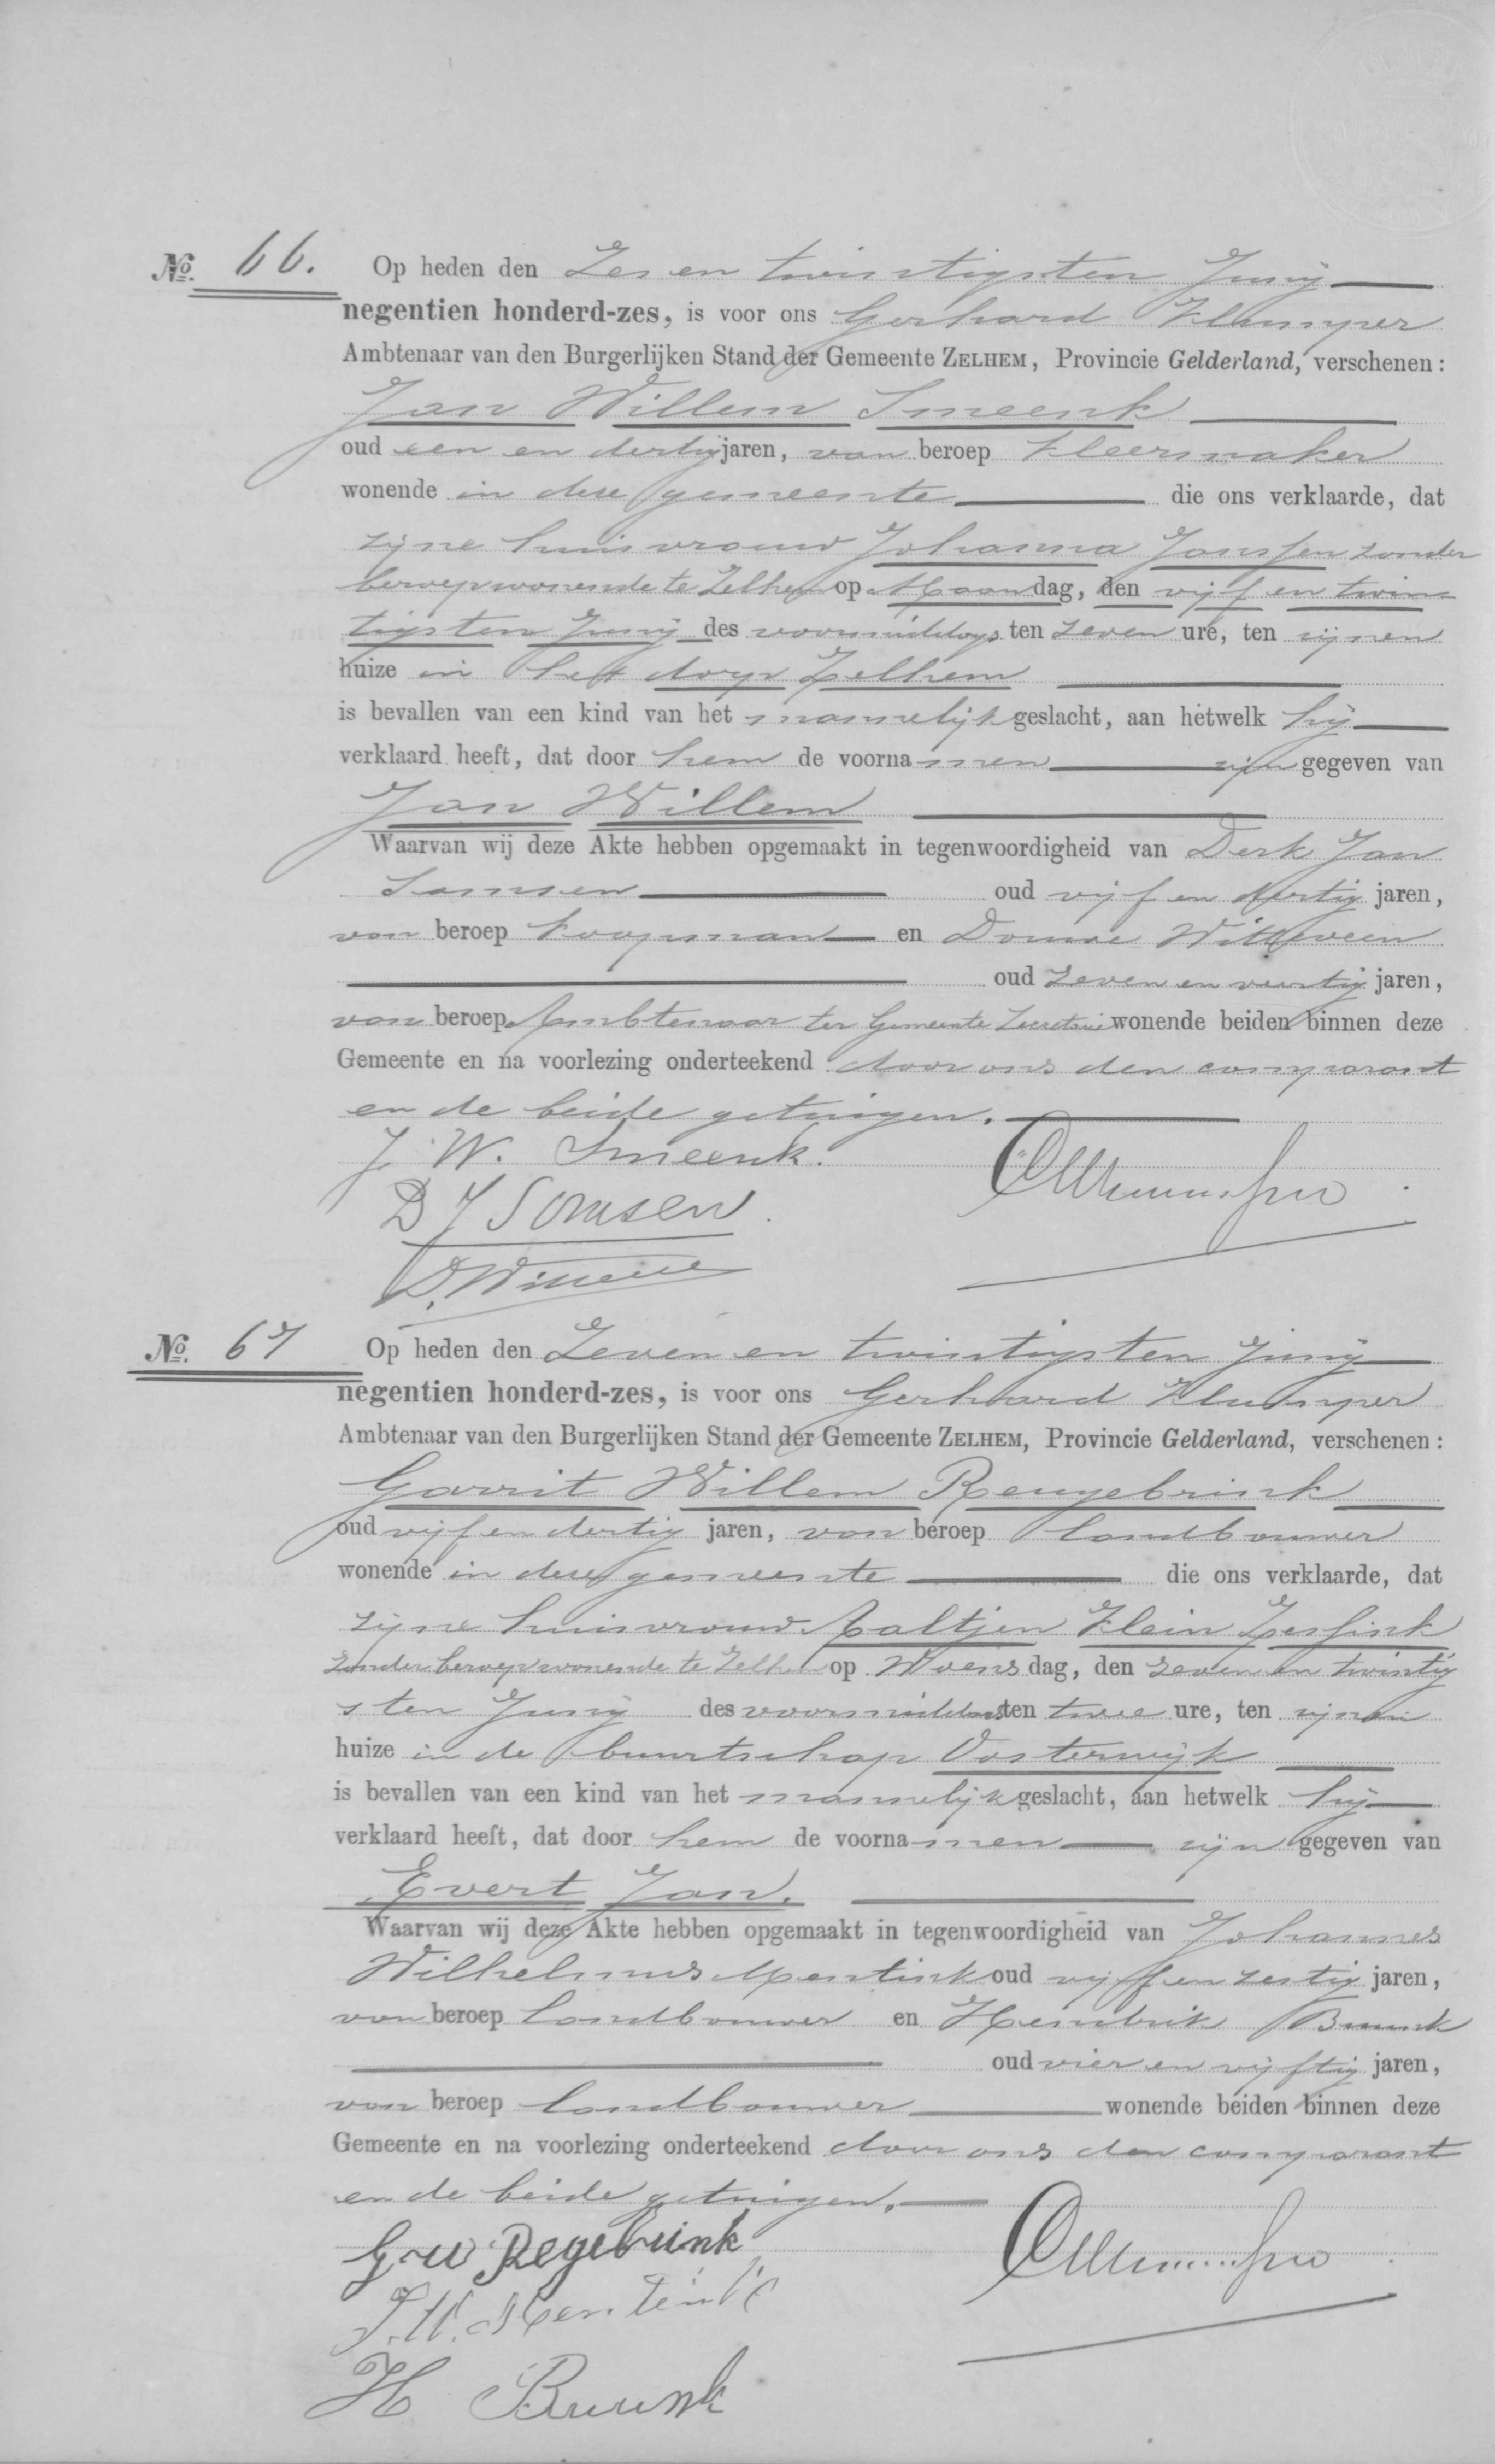 No. 66. Op heden den Zes en twintigsten Junij
negentien honderd-zes, is voor ons Gerhard Klumper
Ambtenaar van den Burgerlijken Stand der Gemeente ZELHEM, Provincie Gelderland, verschenen:
Jan Willem Smeenk
oud een en dertig jaren, van beroep kleermaker
wonende in deze gemeente die ons verklaarde, dat
zijne huisvrouw Johanna Janssen zonder
beroep wonende te Zelhem op Maandag, den vijf en twin-
tigsten Junij des voormiddags ten zeven ure, ten zijnen
huize in het dorp Zelhem
is bevallen van een kind van het mannelijk geslacht, aan hetwelk hij
verklaard heeft, dat door hem de voornamen zijn gegeven van
Jan Willem
Waarvan wij deze Akte hebben opgemaakt in tegenwoordigheid van Derk Jan
Somsen oud vijf en dertig jaren,
van beroep koopman en Douwe Witteveen
oud zeven en veertig jaren,
van beroep Ambtenaar ter Gemeente Secretarie wonende beiden binnen deze
Gemeente en na voorlezing onderteekend door ons den comparant
en de beide getuigen.
J. W. Smeenk.
D J Somsen.
No. 67 Op heden den Zeven en twintigsten Junij
negentien honderd-zes, is voor ons Gerhard Klumper
Ambtenaar van den Burgerlijken Stand der Gemeente ZELHEM, Provincie Gelderland, verschenen:
Garrit Willem Reugebrink
oud vijf en dertig jaren, van beroep landbouwer
wonende in deze gemeente die ons verklaarde, dat
zijne huisvrouw Aaltjen Klein Zessink
zonder beroep wonende te Zelhem op Woensdag, den zeven en twintig
sten Junij des voormiddags ten twee ure, ten zijnen
huize in de buurtschap Oosterwijk
is bevallen van een kind van het mannelijk geslacht, aan hetwelk hij
verklaard heeft, dat door hem de voornamen zijn gegeven van
Evert Jan.
Waarvan wij deze Akte hebben opgemaakt in tegenwoordigheid van Johannes
Wilhelmus Mentink oud vijf en zestig jaren,
van beroep landbouwer en Hendrik Buunk
oud vier en vijftig jaren,
van beroep landbouwer wonende beiden binnen deze
Gemeente en na voorlezing onderteekend door ons den comparant
en de beide getuigen.
G W Regebrink
J. W. Mentink
H Buunk